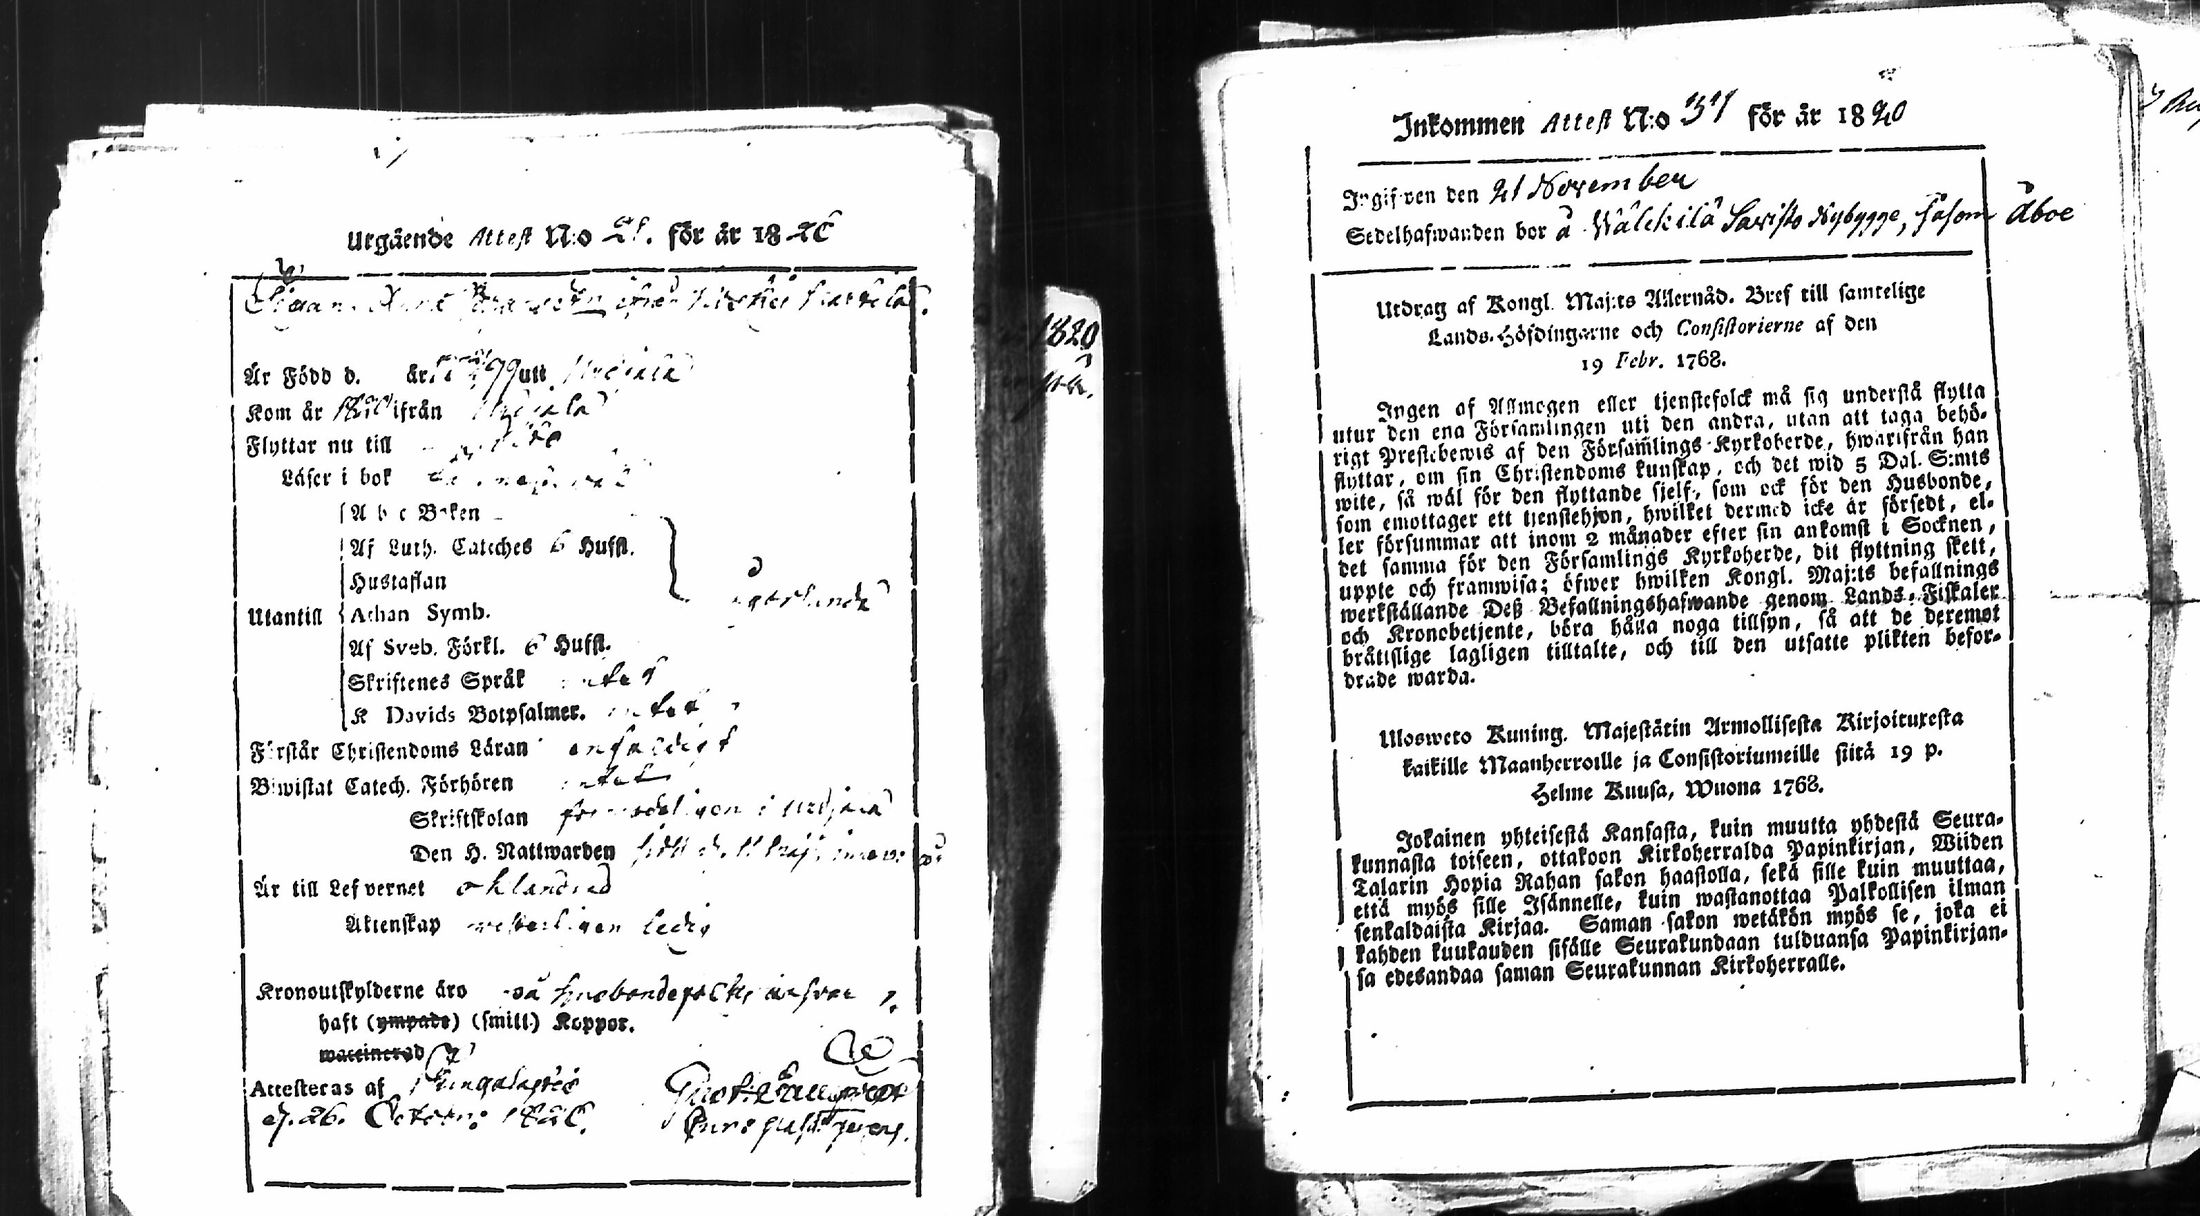 Utgående Attest N:o 21. för år 1820
Pigan
Är Född d. år 1799 uti Urdiala
Kom år 1820 ifrån Urdiala
Flyttar nu till
Läser i bok
A b c Boken
Af Luth. Cateches 6 Hufst.
Hustaflan
Utantill Athan Symb.
Af Sveb. Förkl. 6 Hufst.
Skriftenes Språk intet
K Davids Botpsalmer. intet
Förstår Christendoms Läran enfaldigt
Biwistat Catech. Förhören intet
Skriftskolan förmodeligen i Urdiala
Den H. Nattwarden
Är till Lefvernet oklandrad
Äktenskap veterligen ledig
Kronoutskylderne äro på husbondefolkets ansvar
haft (ympade) (smitt.) Koppor.
waccinerad
Attesteras af
d. 26. October 1820.
1820
Inkommen Attest N:o 37 för år 1820
Ingifven den 21 November
Sedelhafwanden bor å Wälckilä Savisto Nybygge, såsom Åboe
Utdrag af Kongl. Maj:ts Allernåd. Bref till samtelige
Lands-Höfdingarne och Consistorierne af den
19 Febr. 1768.
Ingen af Allmogen eller tjenstefolck må sig understå flytta
utur den ena Församlingen uti den andra, utan att taga behö-
rigt Prestebewis af den Församlings Kyrkoherde, hwarifrån han
flyttar, om sin Christendoms kunskap, och det wid 5 Dal. S:mts
wite, så wäl för den flyttande sjelf, som ock för den Husbonde,
som emottager ett tjenstehjon, hwilket dermed icke är försedt, el-
ler försummar att inom 2 månader efter sin ankomst i Socknen,
det samma för den Församlings Kyrkoherde, dit flyttning skett,
uppte och framwisa; öfwer hwilken Kongl. Maj:ts befallnings
werkställande Deß Befallningshafwande genom Lands-Fiskaler
och Kronobetjente, böra hålla noga tillsyn, så att de deremot
bråttslige lagligen tilltalte, och till den utsatte plikten befor-
drade warda.
Ulosweto Kuning. Majestätin Armollisesta Kirjoituxesta
kaikille Maanherroille ja Consistoriumeille siitä 19 p.
Helme Kuusa, Wuona 1768.
Jokainen yhteisestä Kansasta, kuin muutta yhdestä Seura-
kunnasta toiseen, ottakoon Kirkoherralda Papinkirjan, Wiiden
Talarin Hopia Rahan sakon haastolla, sekä sille kuin muuttaa,
että myös sille Isännelle, kuin wastanottaa Palkollisen ilman
senkaldaista Kirjaa. Saman sakon wetäkön myös se, joka ei
kahden kuukauden sisälle Seurakundaan tulduansa Papinkirjan-
sa edesandaa saman Seurakunnan Kirkoherralle.